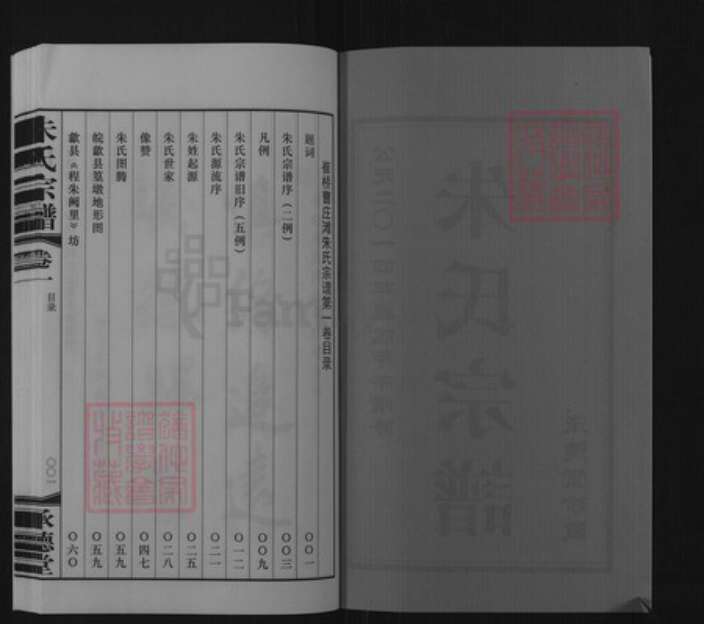 崔桥曹庄湾朱氏宗谱第一卷目录
题词 〇〇一
朱氏宗谱序（二例） 〇〇三
凡例 〇〇九
朱氏宗谱旧序（五例） 〇一二
朱氏源流序 〇二一
朱姓起源 〇二五
朱氏世家 〇二八
像赞 〇四七
朱氏图腾 〇五九
皖歙县篁墩地形图 〇五九
歙县《程朱阙里》坊 〇六〇
朱氏宗譜
卷一
目录
〇〇一
承德堂
朱氏宗譜